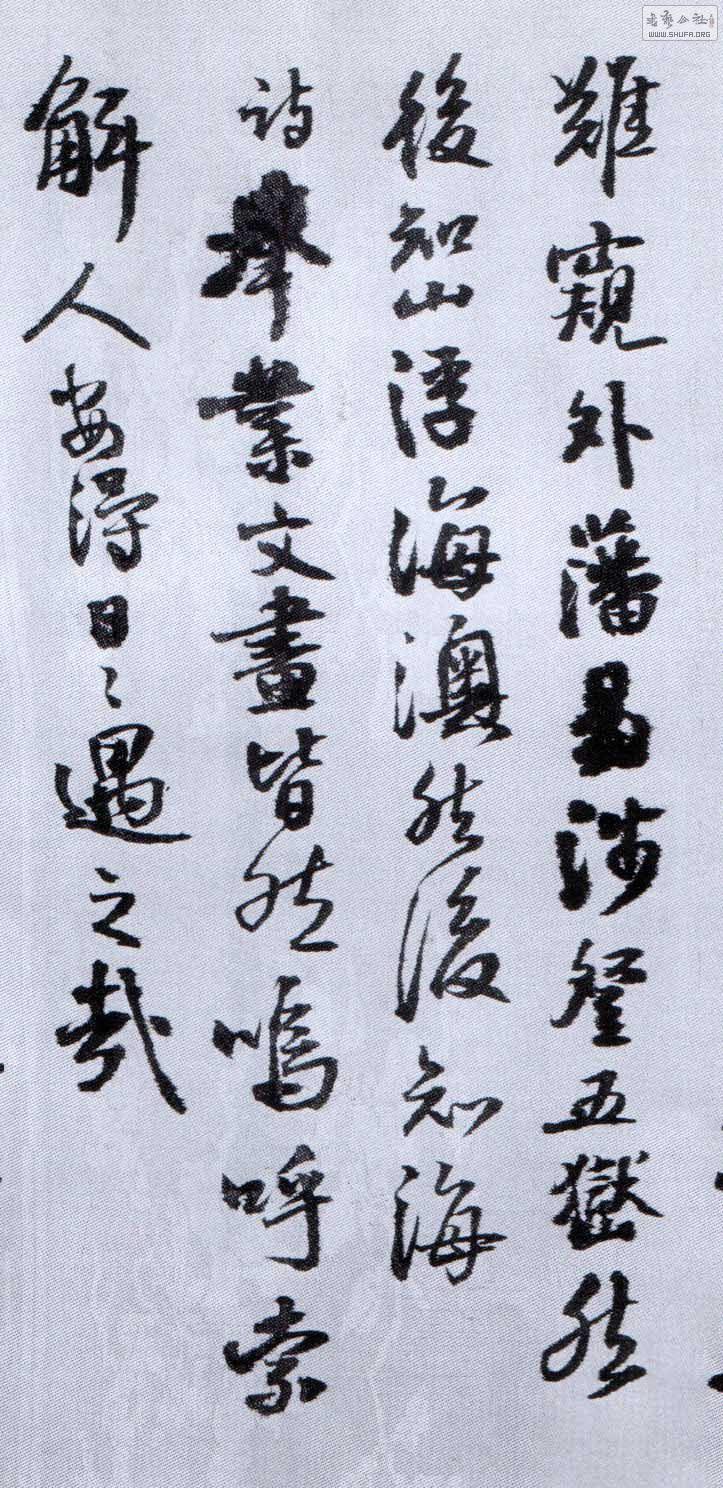 難窺外藩易涉登五嶽然
後知山浮海澳然後知海
詩舉業文畫皆然嗚呼索
解人安得日〻遇之哉
WWW.SHUFA.ORG